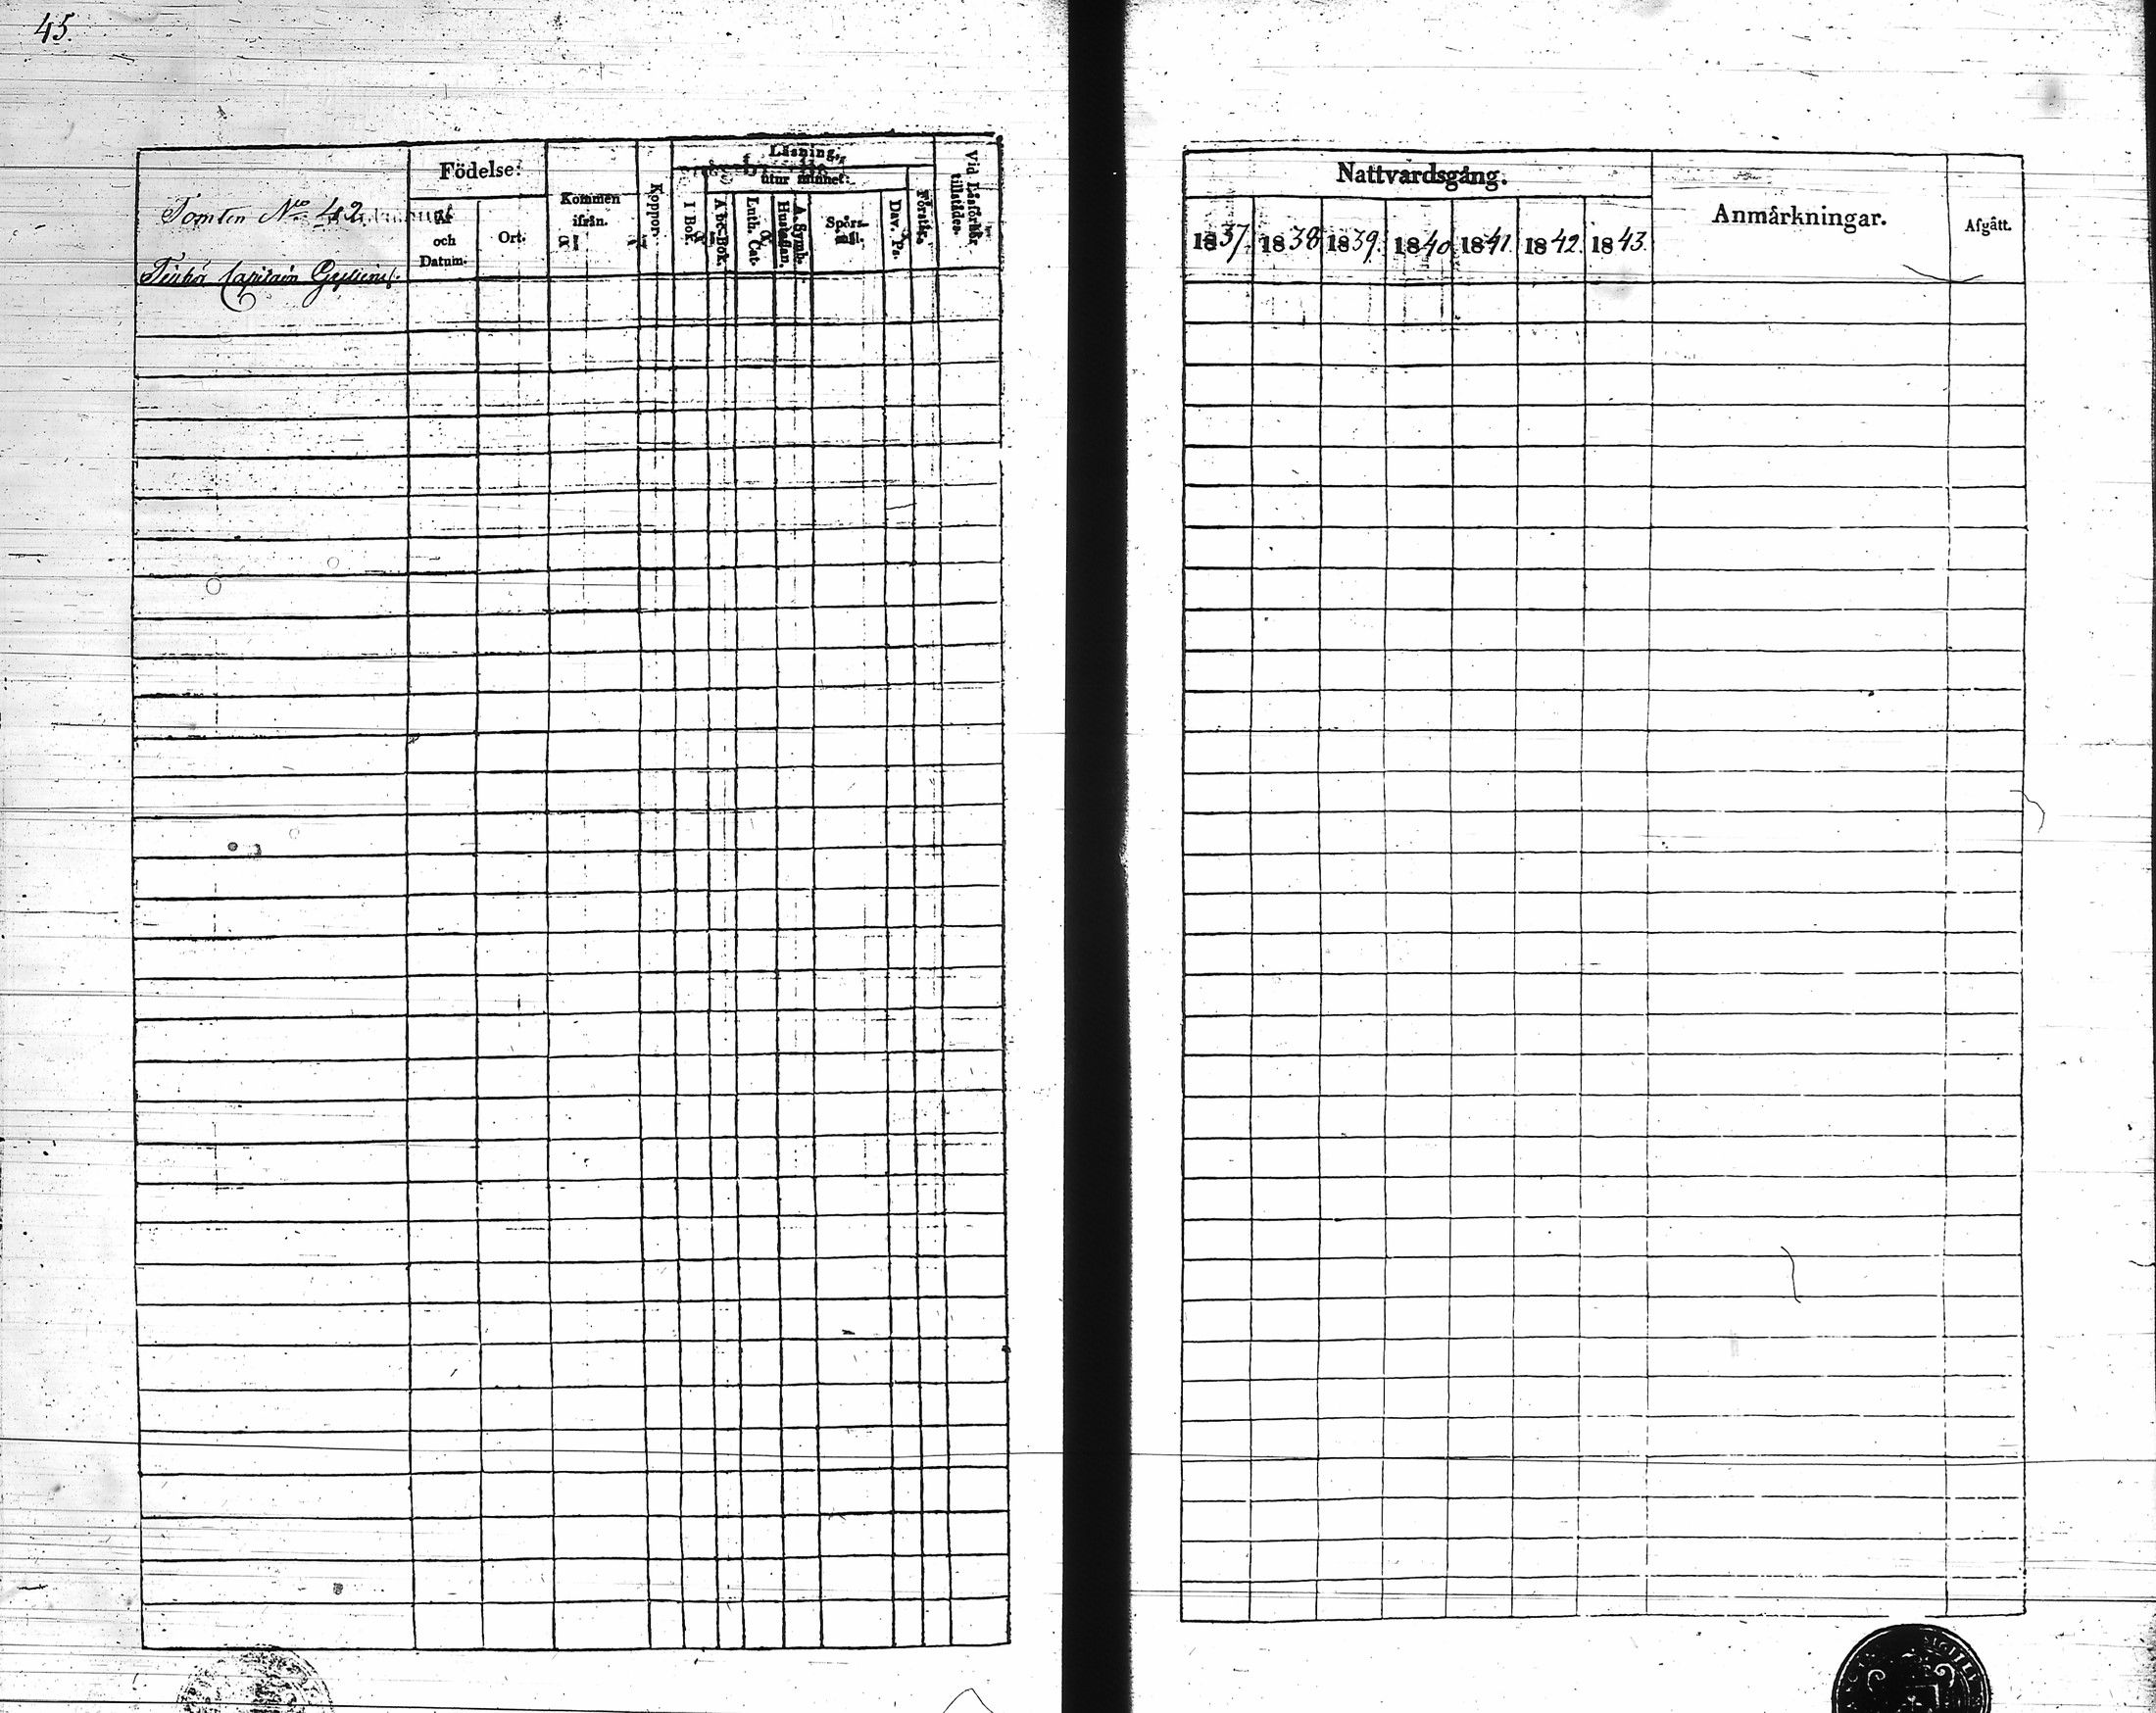 45.
Födelse:
Läsning,
utur minnet:
Tomten No 42.
År
och
Datum.
Ort.
Kommen
ifrån.
Koppor.
I Bok.
A b c-Bok.
Luth. Cat.
A. Symb.
Hustaflan.
Spörs-
mål.
Dav. Ps.
Förstår.
Vid Läsförhör
tillstädes.
Capitain
Nattvardsgång.
Anmärkningar.
Afgått.
1837. 1838 1839. 1840 1841. 1842. 1843.